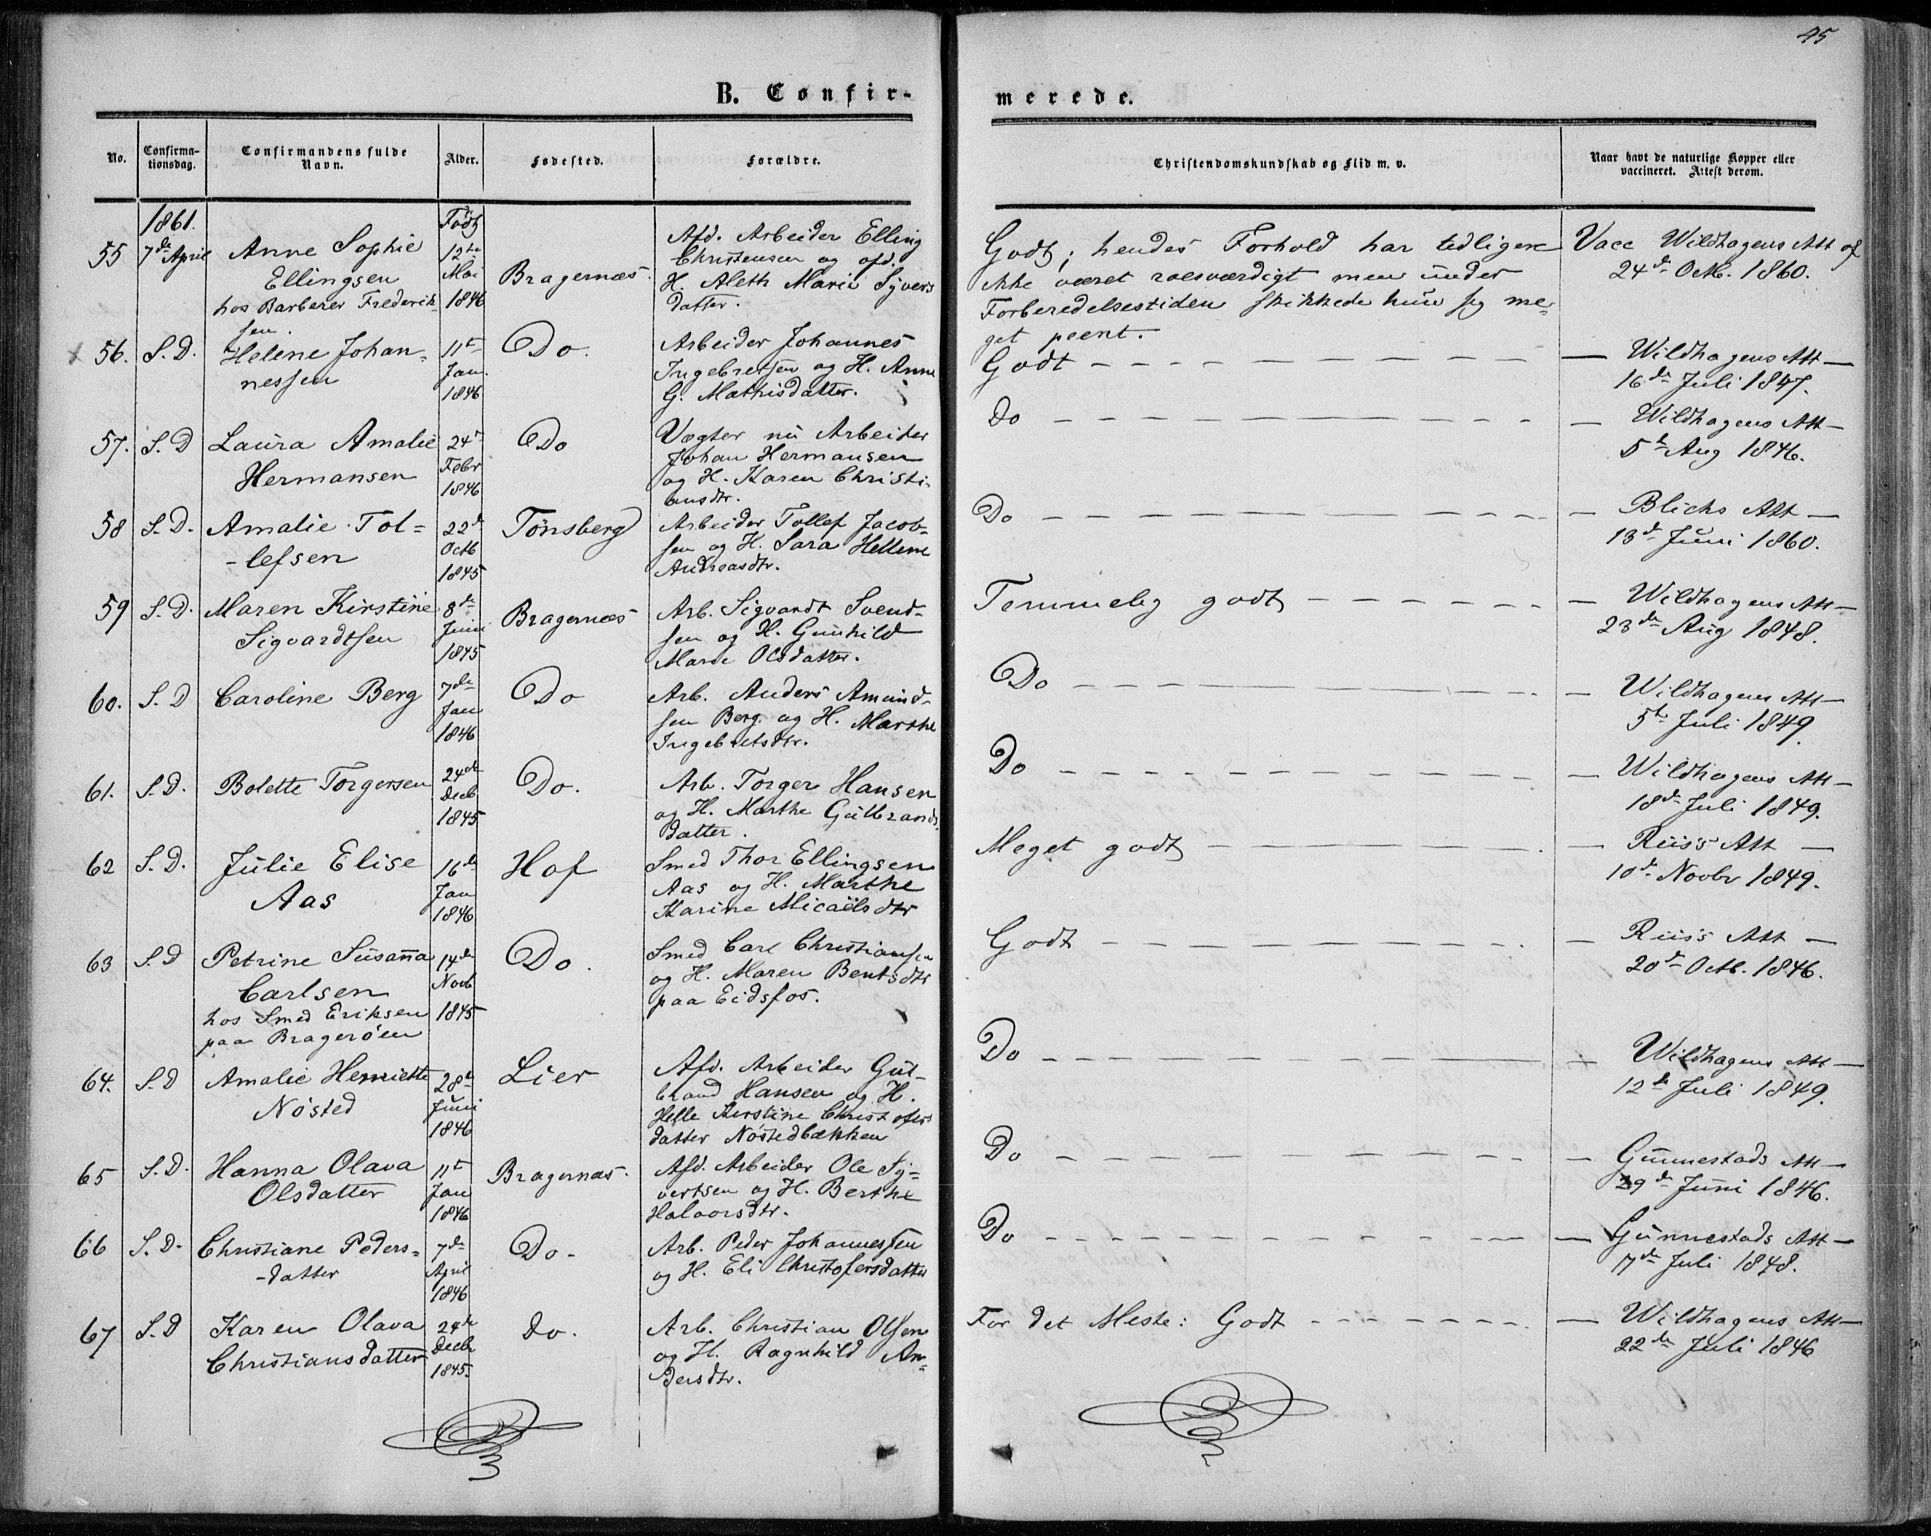 45
B. Confir-
merede.
No.
Confirma-
tionsdag.
Confirmandens fulde
Navn.
Alder.
Fødested.
Forældre.
Christendomskundskab og Flid m. v.
Naar havt de naturlige Kopper eller
vaccineret. Attest derom.
1861.
55 7de April Anne Sophie
Ellingsen
hos Barberer Frederik-
sen.
Født
12te
Mai
1846
Bragernæs.
Afd. Arbeider Elling
Christensen og afd.
H. Aleth Marie Syvers
datter.
Godt; hendes Forhold har tidligere
ikke været roesværdigt men under
Forberedelsestiden skikkede hun sig me-
get peent.
Vacc Wildhagens Att af
24de Octb. 1860.
56. S.D. Helene Johan-
nessen
11te
Jan.
1846
Do.
Arbeider Johannes
Ingebretsen og H. Anne
G. Mathisdatter.
Godt
Wildhagens Att
16de Juli 1847.
57. S.D Laura Amalie
Hermansen
24de
Febr
1846
Do
Vægter nu Arbeider
Johan Hermansen
og H. Karen Christi-
ansdtr.
Do
Wildhagens Att
5te Aug 1846.
58 S.D. Amalie Tol-
-lefsen
22de
Octb
1845
Tønsberg
Arbeider Tollef Jacob-
sen og H. Sara Hellene
Andreasdtr.
Do
Blichs Att
13de Juni 1860.
59 S.D. Maren Kirstine
Sigvardtsen
8de
Juni
1845
Bragernæs
Arb. Sigvardt Svend-
sen og H. Gunhild
Marie Olsdatter.
Temmelig godt
Wildhagens Att
23de Aug 1848.
60. S.D Caroline Berg
7de
Jan
1846
Do
Arb. Anders Amund-
sen Berg og H. Marthe
Ingebretsdtr.
Do
Wildhagens Att
5te Juli 1849.
61. S.D. Bolette Torgersen
24de
Decb
1845
Do.
Arb. Torger Hansen
og H. Marthe Gulbrands
datter.
Do
Wildhagens Att
18de Juli 1849.
62 S.D. Julie Elise
Aas
16de
Jan
1846
Hof
Smed Thor Ellingsen
Aas og H. Marthe
Karine Micaëlsdtr
Meget godt
Riiss Att
10de Novbr 1849.
63 S.D Petrine Susanna
Carlsen
hos Smed Eriksen
paa Bragerøen
14de
Novb
1845
Do.
Smed Carl Christiansen
og H. Maren Bentsdtr
paa Eidsfos.
Godt
Riiss Att
20de Octb. 1846.
64. S.D Amalie Henriette
Nøsted
28de
Juni
1846
Lier
Afd. Arbeider Gul-
brand Hansen og H.
Helle Kirstine Christofers
datter Nøstedbækken
Do
Wildhagens Att
12te Juli 1849.
65 S.D. Hanna Olava
Olsdatter
11te
Jan
1846
Bragernæs.
Afd. Arbeider Ole Sy-
vertsen og H. Berthe
Halvorsdtr.
Do
Gunnestads Att
29de Juni 1846.
66 S.D. Christiane Peders-
-datter
7de
April
1846
Do-
Arb. Peder Johannessen
og H. Eli Christofersdatter
Do
Gunnestads Att
17de Juli 1848.
67 S.D Karen Olava
Christiansdatter
24de
Decbr
1845.
Do.
Arb. Christian Olsen
og H. Ragnhild An-
dersdtr.
For det Meste: Godt
Wildhagens Att
22de Juli 1846